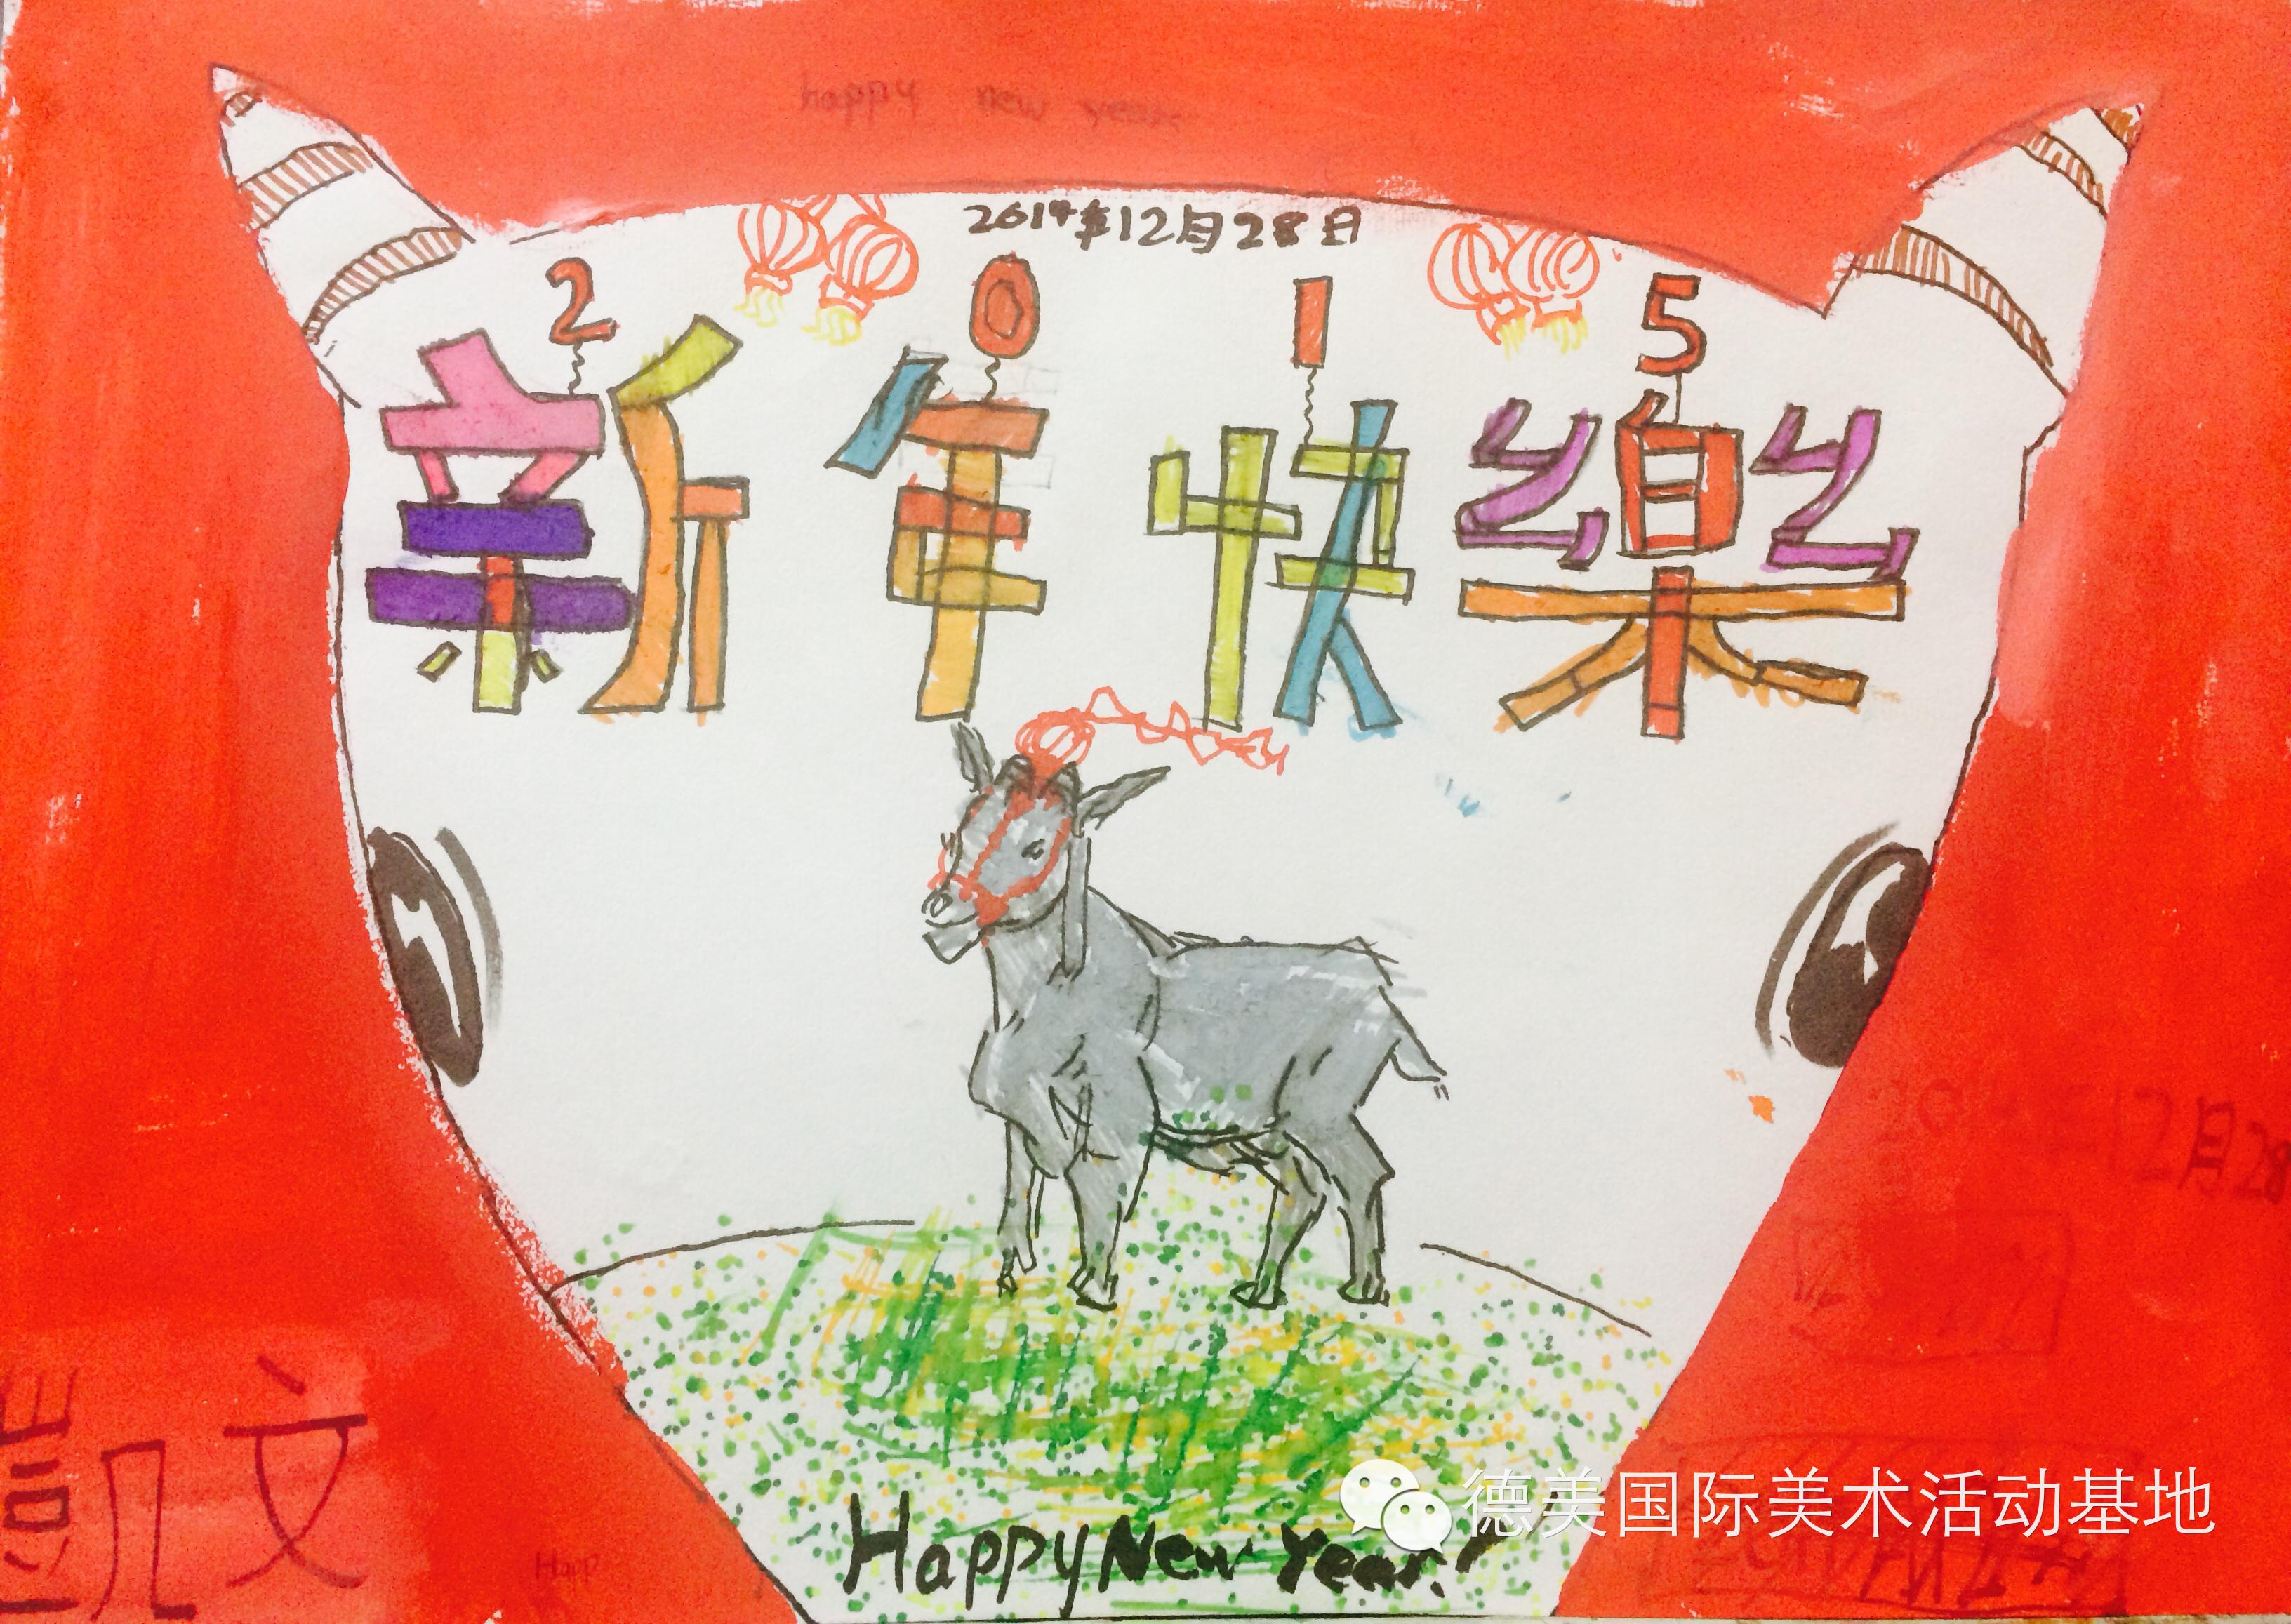 happy new year
2014年12月28日
2 0 1 5
新年快樂
2014年12月28
凱文
Happ
Happy New Year!
德美国际美术活动基地